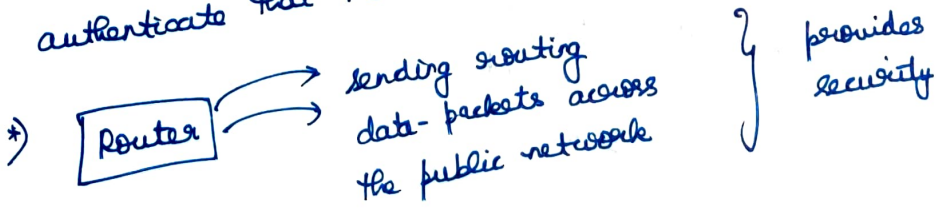 authenticate
*) Router sending routing
data-packets across
the public network
provides
security